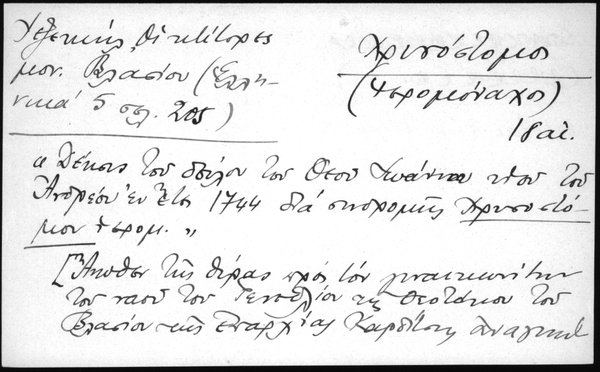 Γεζεκής, Οἱ κτίτορες
μον. Βλασίου (Ἑλλη-
νικά 5 σελ. 205)
Χρυσόστομος
(Ἱερομόναχος)
18 αἰ.
"Δέησις τοῦ δούλου τοῦ Θεοῦ Ἰωάννου τοῦ
Ἀνδρέου ἐν ἔτει 1744 διά συνδρομῆς Χρυσοστό-
μου ἱερομ. "
[Ἄνωθεν τῆς θύρας πρός τόν γυναικωνίτην
τοῦ ναοῦ τοῦ Γενεθλίου τῆς Θεοτόκου τοῦ
Βλασίου τῆς ἐπαρχίας Καρδίτσης